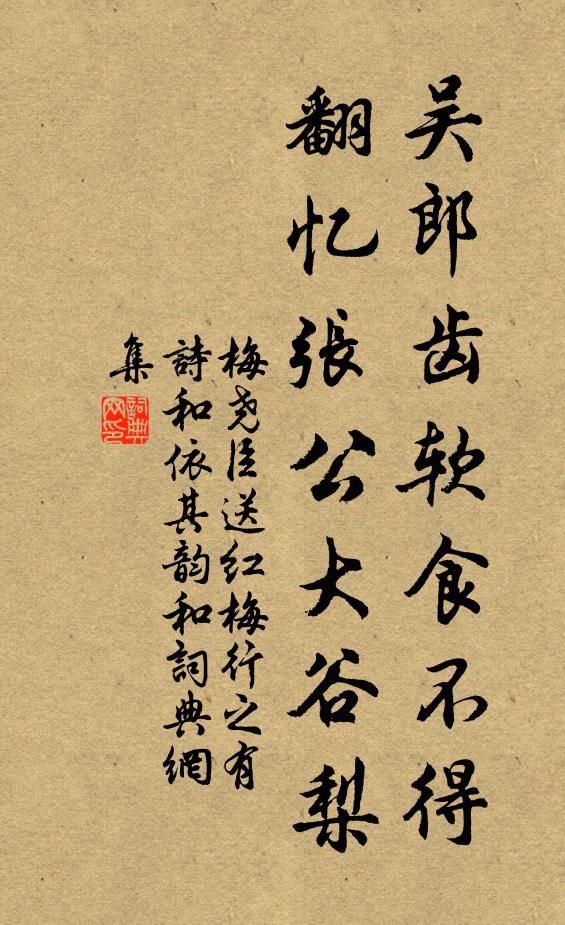 吴郎齿软食不得
翻忆張公大谷梨
梅尧臣送红梅行之有
詩和依其韵和詞典網
集
詞典网印